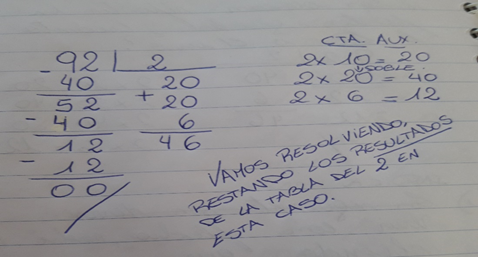 - 92 | 2
40 20
52 + 20
- 40 6
12 46
- 12
00
CTA. AUX.
2 x 10 = 20
DOBLE.
2 x 20 = 40
2 x 6 = 12
VAMOS RESOLVIENDO,
RESTANDO LOS RESULTADOS
DE LA TABLA DEL 2 EN
ESTA CASO.